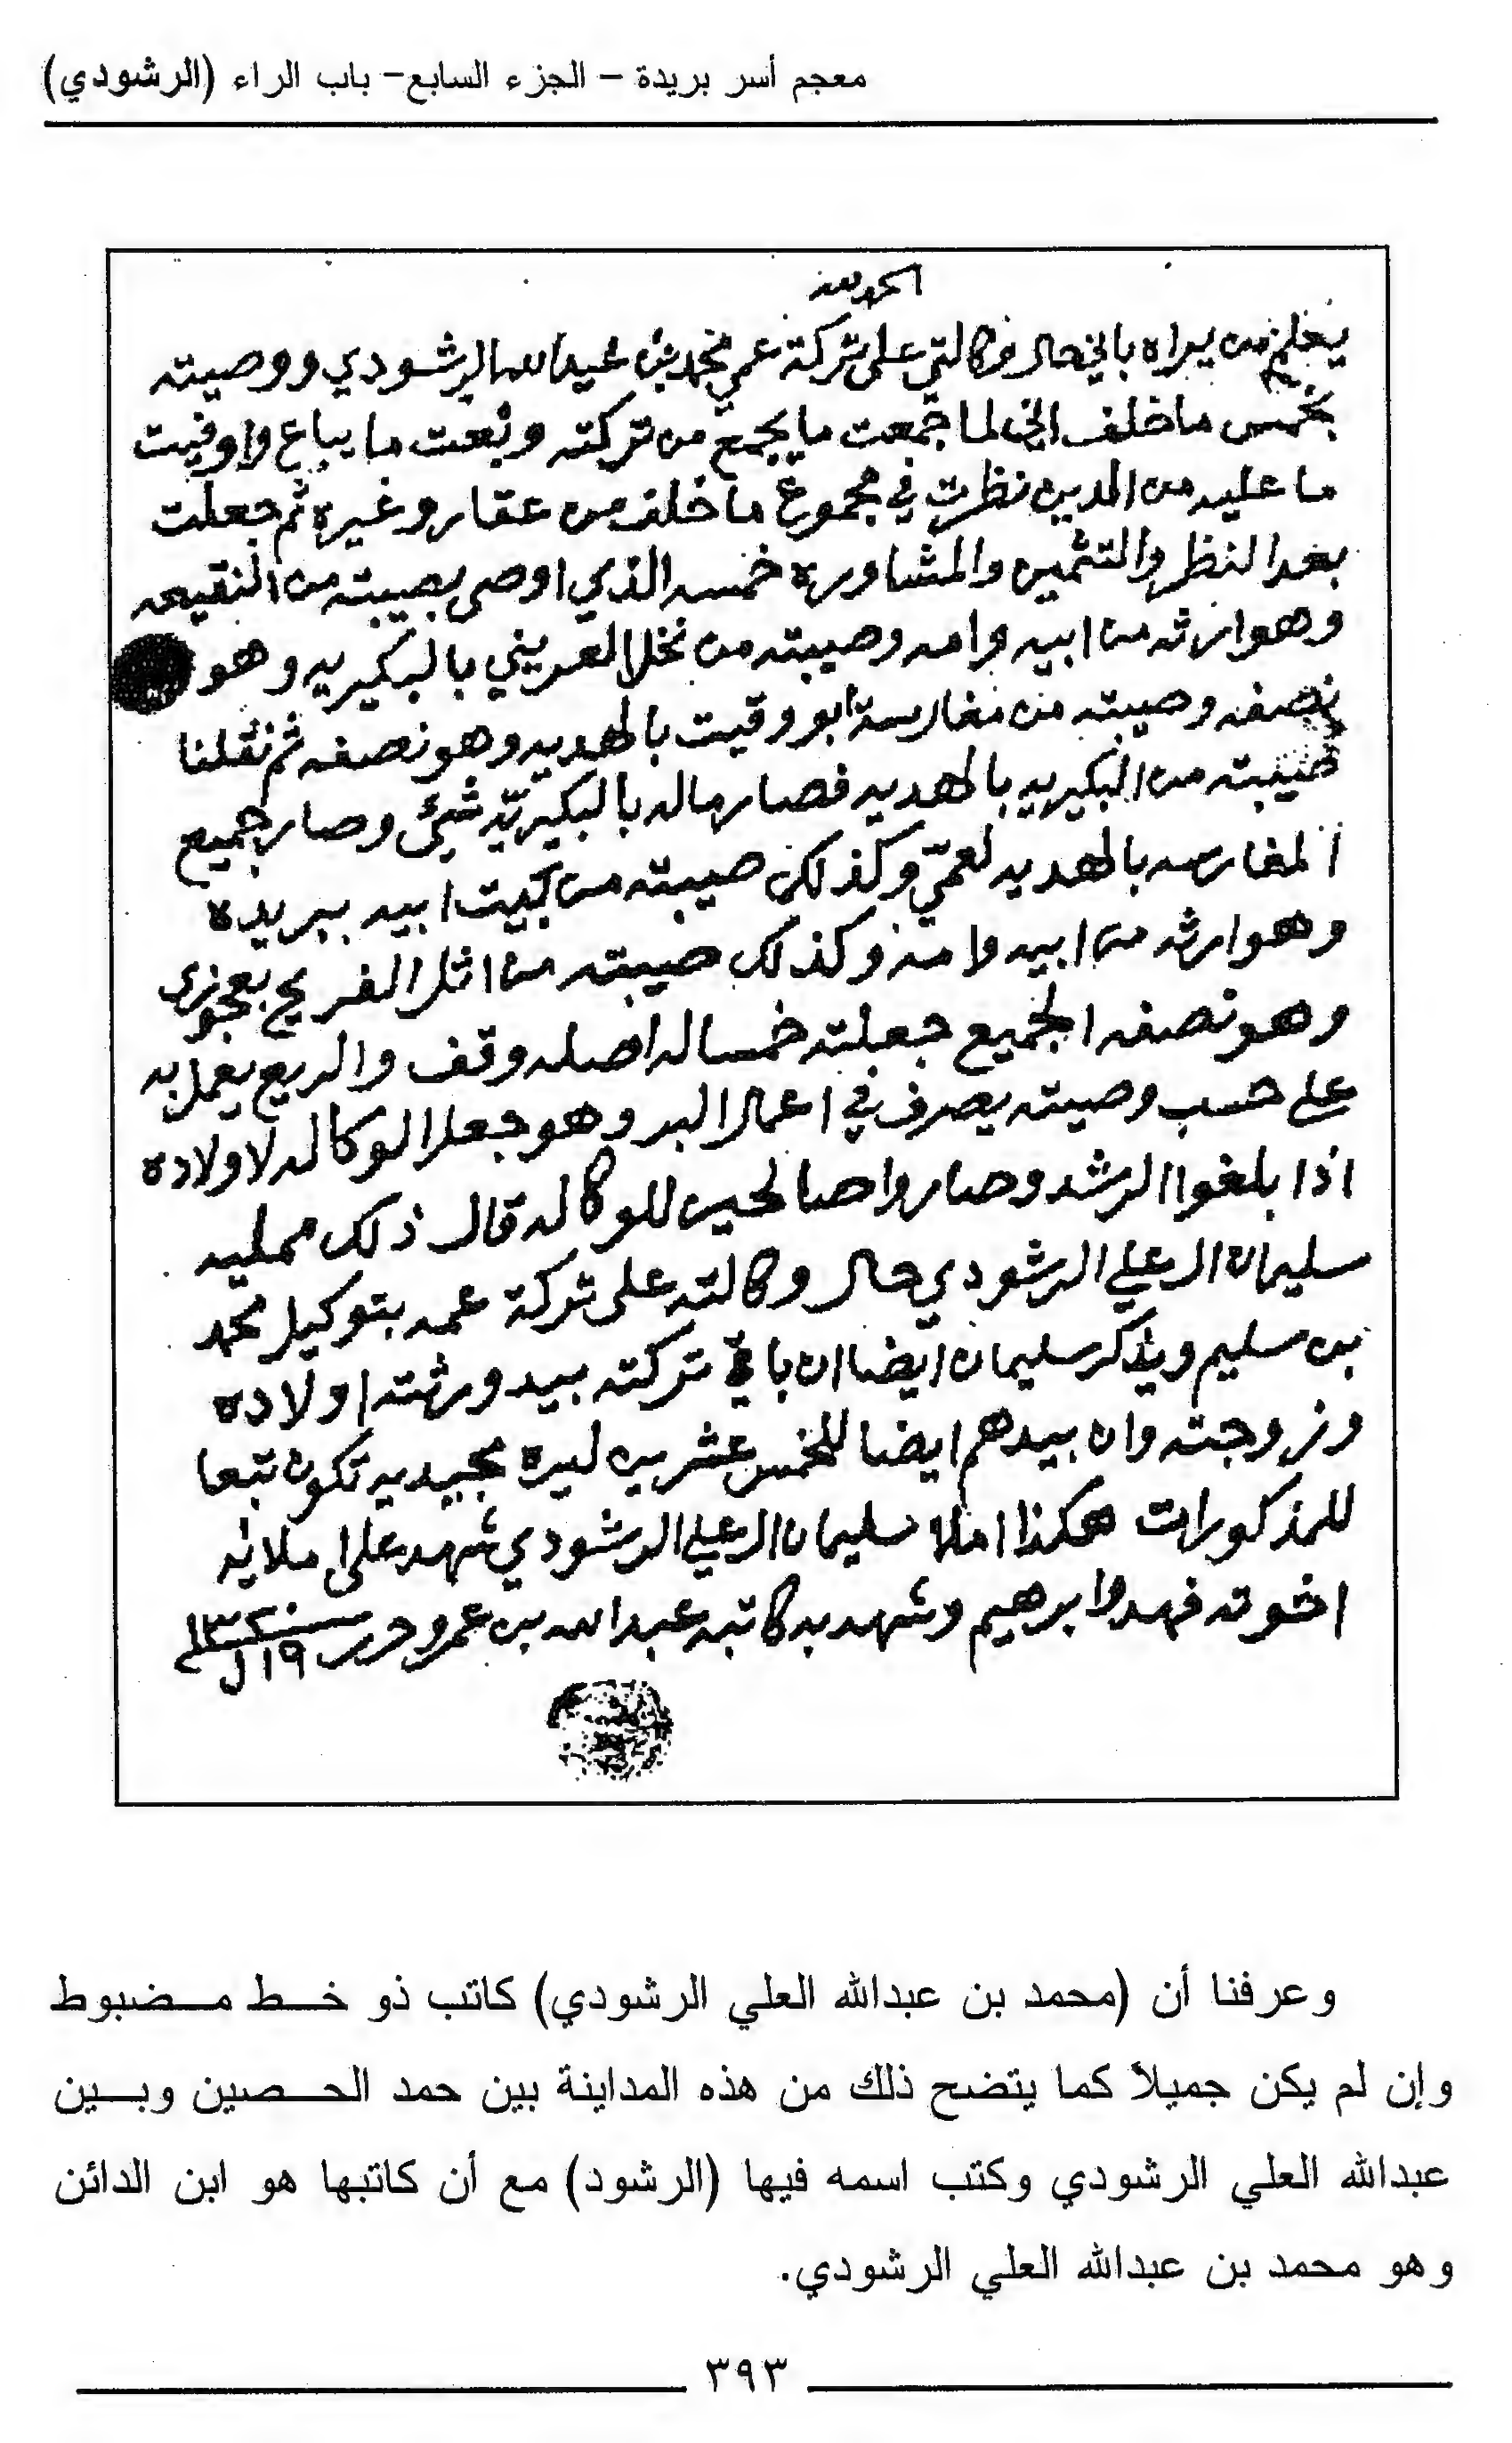 معجم أسر بريدة – الجزء السابع– باب الراء (الرشودي)
الحمد لله
يعلم من يراه باني حال وكالتي على تركة عمي محمد بن عبدالله الرشودي ووصيته
بخمس ما خلف اني لما جمعت ما يجمع من تركته وبعت ما يباع واوفيت
ما عليه من الدين نظرت في مجموع ما خلف من عقار وغيره ثم جعلت
بعد النظر والتثمين والمشاوره خمسه الذي اوصى به صيبته من النقيعه
وهو ارثه من ابيه وامه وصيبته من نخل العريني بالبكيريه وهو
نصفه وصيبته من مغارسة ابو وقيت بالهديه وهو نصفه ثم نقلنا
صيبته من البكيريه بالهديه فصار ماله بالبكيريّه شيئ وصار جميع
المغارسه بالهديه لعمّي وكذلك صيبته من بيت ابيه ببريده
وهو ارثه من ابيه وامه وكذلك صيبته من اثل الفريح
وهو نصفه الجميع جعلته خمسا له اصله وقف والريع يعمل به
على حسب وصيته يصرف في اعمال البر وهو جعل الوكاله لاولاده
اذا بلغوا الرشد وصاروا صالحين للوكاله قال ذلك ممليه
سليمان ال علي الرشودي حال وكالته على تركة عمه بتوكيل محمد
بن سليم ويذكر سليمان ايضا ان باقي تركته بيد ورثته اولاده
وزوجته وان بيدهم ايضا للخمس عشرين ليره مجيديه تكون تبعا
للمذكورات هكذا املا سليمان ال علي الرشودي شهد على املائه
اخوته فهد وابرهيم وشهد به كاتبه عبدالله بن عمرو حرر سنة ١٩ ل
وعرفنا أن (محمد بن عبدالله العلي الرشودي) كاتب ذو خط مضبوط
وإن لم يكن جميلاً كما يتضح ذلك من هذه المداينة بين حمد الحصين وبين
عبدالله العلي الرشودي وكتب اسمه فيها (الرشود) مع أن كاتبها هو ابن الدائن
وهو محمد بن عبدالله العلي الرشودي.
٣٩٣